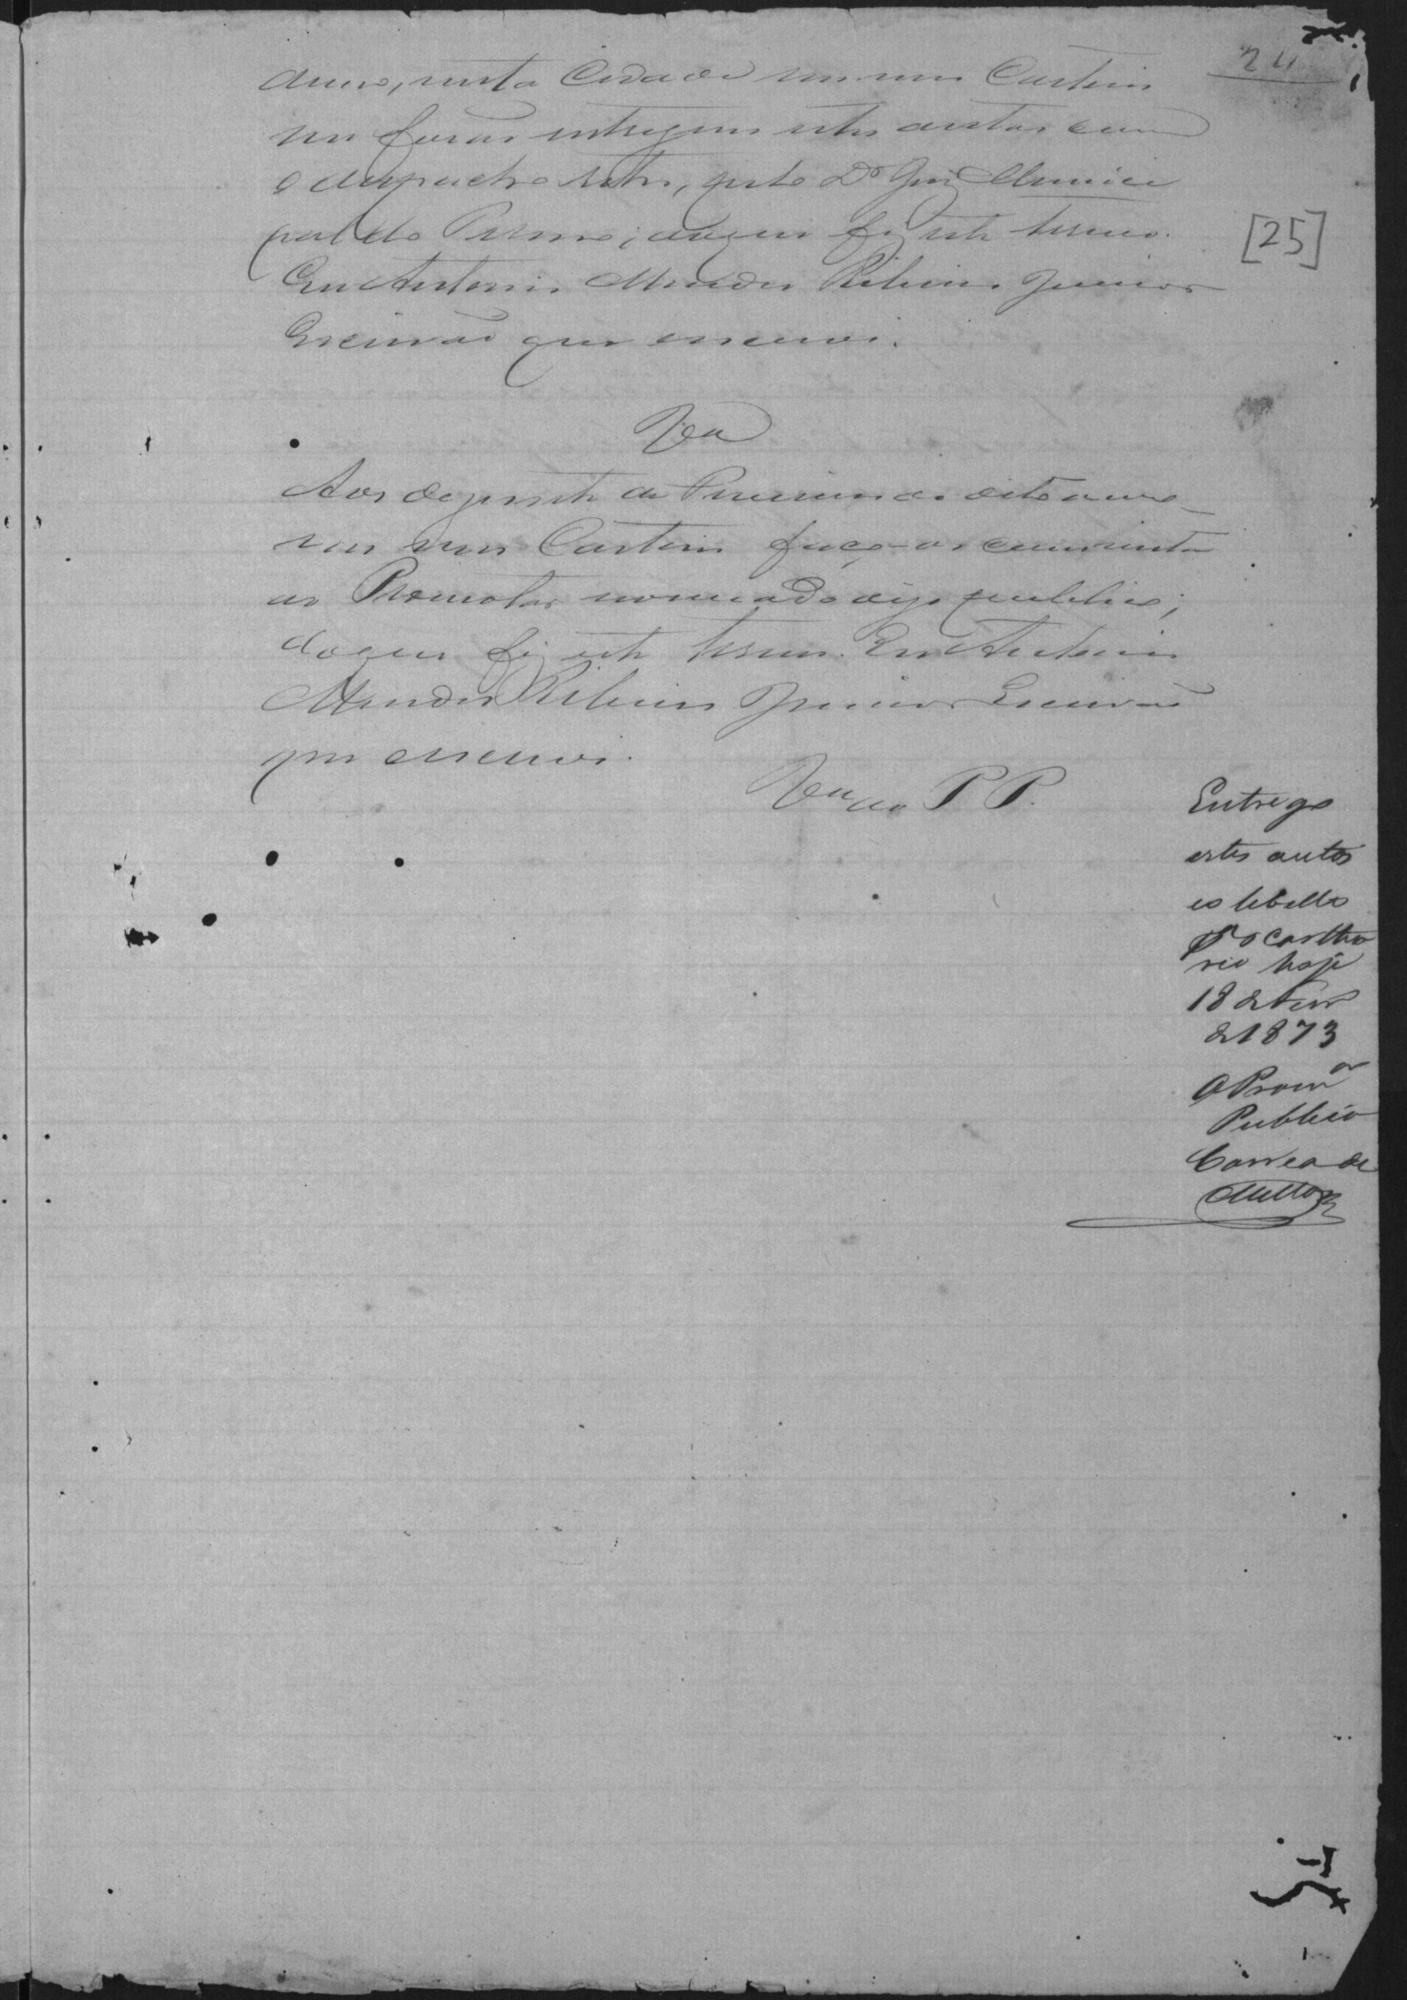 24
anno, nesta Cidade em meu Cartorio
me forão entregues estes autos com
o despacho retro, pelo Dor Juiz Munici
pal do Termo; do que fiz este termo.
Eu Antonio Mendes Ribeiro Junior
Escrivão que escrevi.
[25]
Vta
Aos de do dito anno
em meu Cartorio faço-os com vista
ao Promotor nomeado digo publico;
do que fiz este termo. Eu Antonio
Mendes Ribeiro Junior Escrivão
que escrevi.
Vta ao P P.
Entrego
estes autos
e o libello
pa o carto
rio hoje
18 de
de 1873
O Promor
Publico
Correa de
Mello